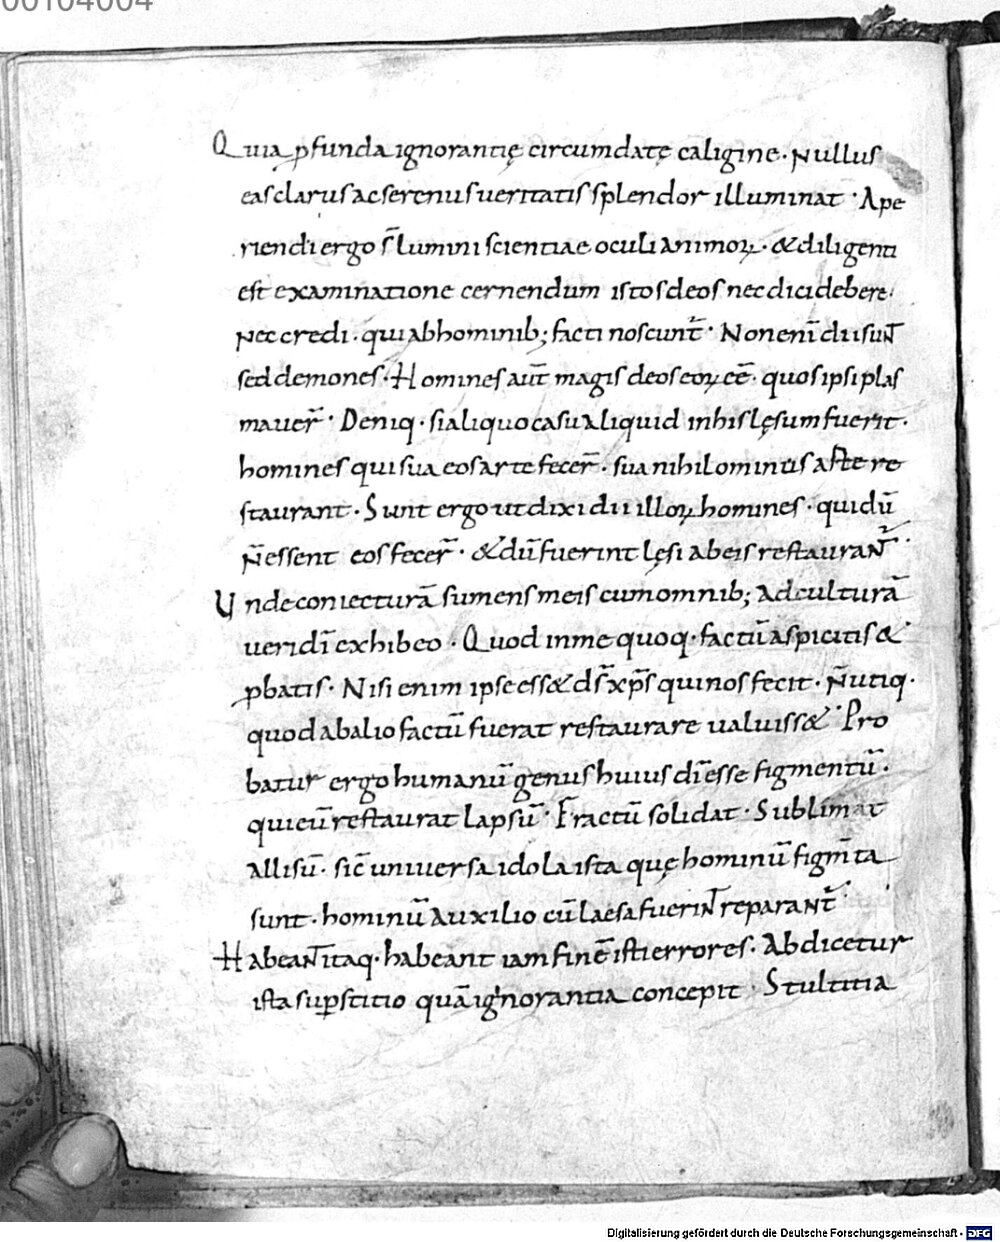 00104004
Quia ꝓfunda ignorantię circumdatę caligine · Nullus
eas clarus ac serenus ueritatis splendor illuminat · Ape
riendi ergo s̄ lumini scientiae oculi animoꝝ · & diligenti
est examinatione cernendum istos deos nec dici debere ·
Nec credi · qui ab hominib; facti noscunt̄ · Non enī dii sunt̄
sed demones · Homines aūt magis deos eoꝝ eē · quos ipsi plas
mauer̄ · Deniq · si aliquo casu aliquid in his lęsum fuerit ·
homines qui sua eos arte fecer̄ · sua nihilominus aste re
staurant · Sunt ergo ut dixi dii illoꝝ homines · qui dū
n̄ essent eos fecer̄ · & dū fuerint lęsi ab eis restaurant̄ ·
Unde coniecturā sumens meis cum omnib; ad culturā
ueri dī exhibeo · Quod in me quoq · factū aspicitis &
ꝓbatis · Nisi enim ipse ess& ds̄ xp̄s qui nos fecit · n̄ utiq ·
quod ab alio factū fuerat restaurare ualuiss& · Pro
batur ergo humanū genus huius dī esse figmentū ·
qui eū restaurat lapsū · Fractū solidat · Sublimat
allisū · sic̄ uniuersa idola ista quę hominū figm̄ta
sunt · hominū auxilio cū laesa fuerint̄ reparant̄ ·
Habeant̄ itaq · habeant iam finē isti errores · Abdicetur
ista suꝑstitio quā ignorantia concepit · Stultitia
Digitalisierung gefördert durch die Deutsche Forschungsgemeinschaft · DFG